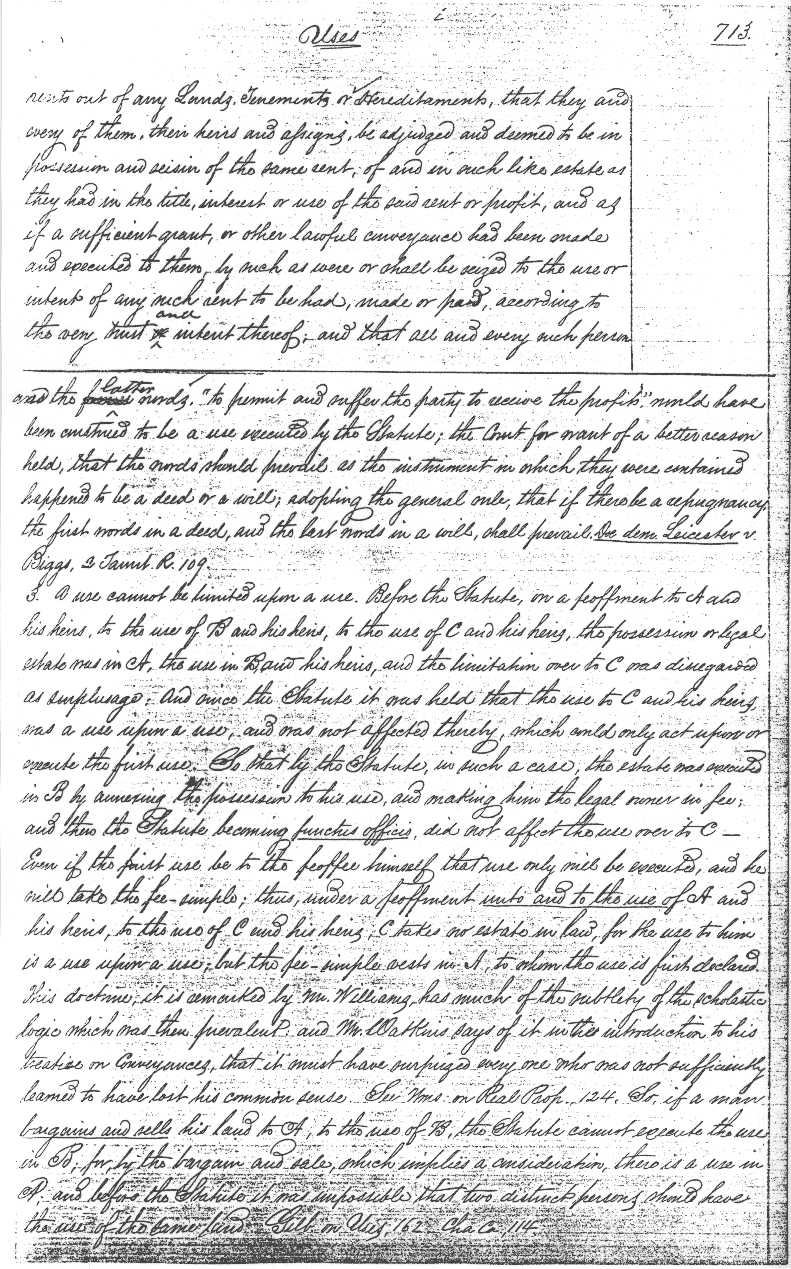 Uses
713.
rents out of any Lands, Tenements, or Hereditaments, that they and
every of them, their heirs and assigns, be adjudged and deemed to be in
possession and seisin of the same rent, of and in such like estate as
they had in the title, interest or use of the said rent or profit, and as
if a sufficient grant, or other lawful conveyance had been made
and executed to them, by such as were or shall be seized to the use or
intent of any such rent to be had, made or paid, according to
the very trust and intent thereof; and that all and every such person
and the latter words, "to permit and suffer the party to receive the profits," would have
been construed to be a use executed by the Statute; the Court for want of a better reason
held, that the words should prevail as the instrument in which they were contained
happened to be a deed or a will; adopting the general rule, that if there be a repugnancy
the first words in a deed, and the last words in a will, shall prevail. Doe dem. Leicester v.
Biggs, 2 Taunt. R. 109.
3. A use cannot be limited upon a use. Before the Statute, on a feoffment to A and
his heirs, to the use of B and his heirs, to the use of C and his heirs, the possession or legal
estate was in A, the use in B, and his heirs, and the limitation over to C was disregarded
as surplusage; And since the Statute it was held that the use to C and his heirs,
was a use upon a use, and was not affected thereby, which could only act upon or
execute the first use. So that by the Statute, in such a case, the estate was executed
in B by annexing the possession to his use, and making him the legal owner in fee;
and then the Statute becoming functus officio, did not affect the use over to C —
Even if the first use be to the feoffee himself that use only will be executed, and he
will take the fee-simple; thus, under a feoffment unto and to the use of A and
his heirs, to the use of C and his heirs, C takes no estate in law, for the use to him
is a use upon a use; but the fee-simple vests in A, to whom the use is first declared.
This doctrine, it is remarked by Mr. Williams, has much of the subtlety of the scholastic
logic which was then prevalent, and Mr. Watkins says of it in the introduction to his
treatise on Conveyances, that it must have surprized every one who was not sufficiently
learned to have lost his common sense. See Wms. on Real Prop. 124. So, if a man
bargains and sells his land to A, to the use of B, the Statute cannot execute the use
in B, for, by the bargain and sale, which implies a consideration, there is a use in
A, and before the Statute it was impossible that two distinct persons should have
the use of the same land. Gilb. on Uses, 162 — Cha Ca. 114.